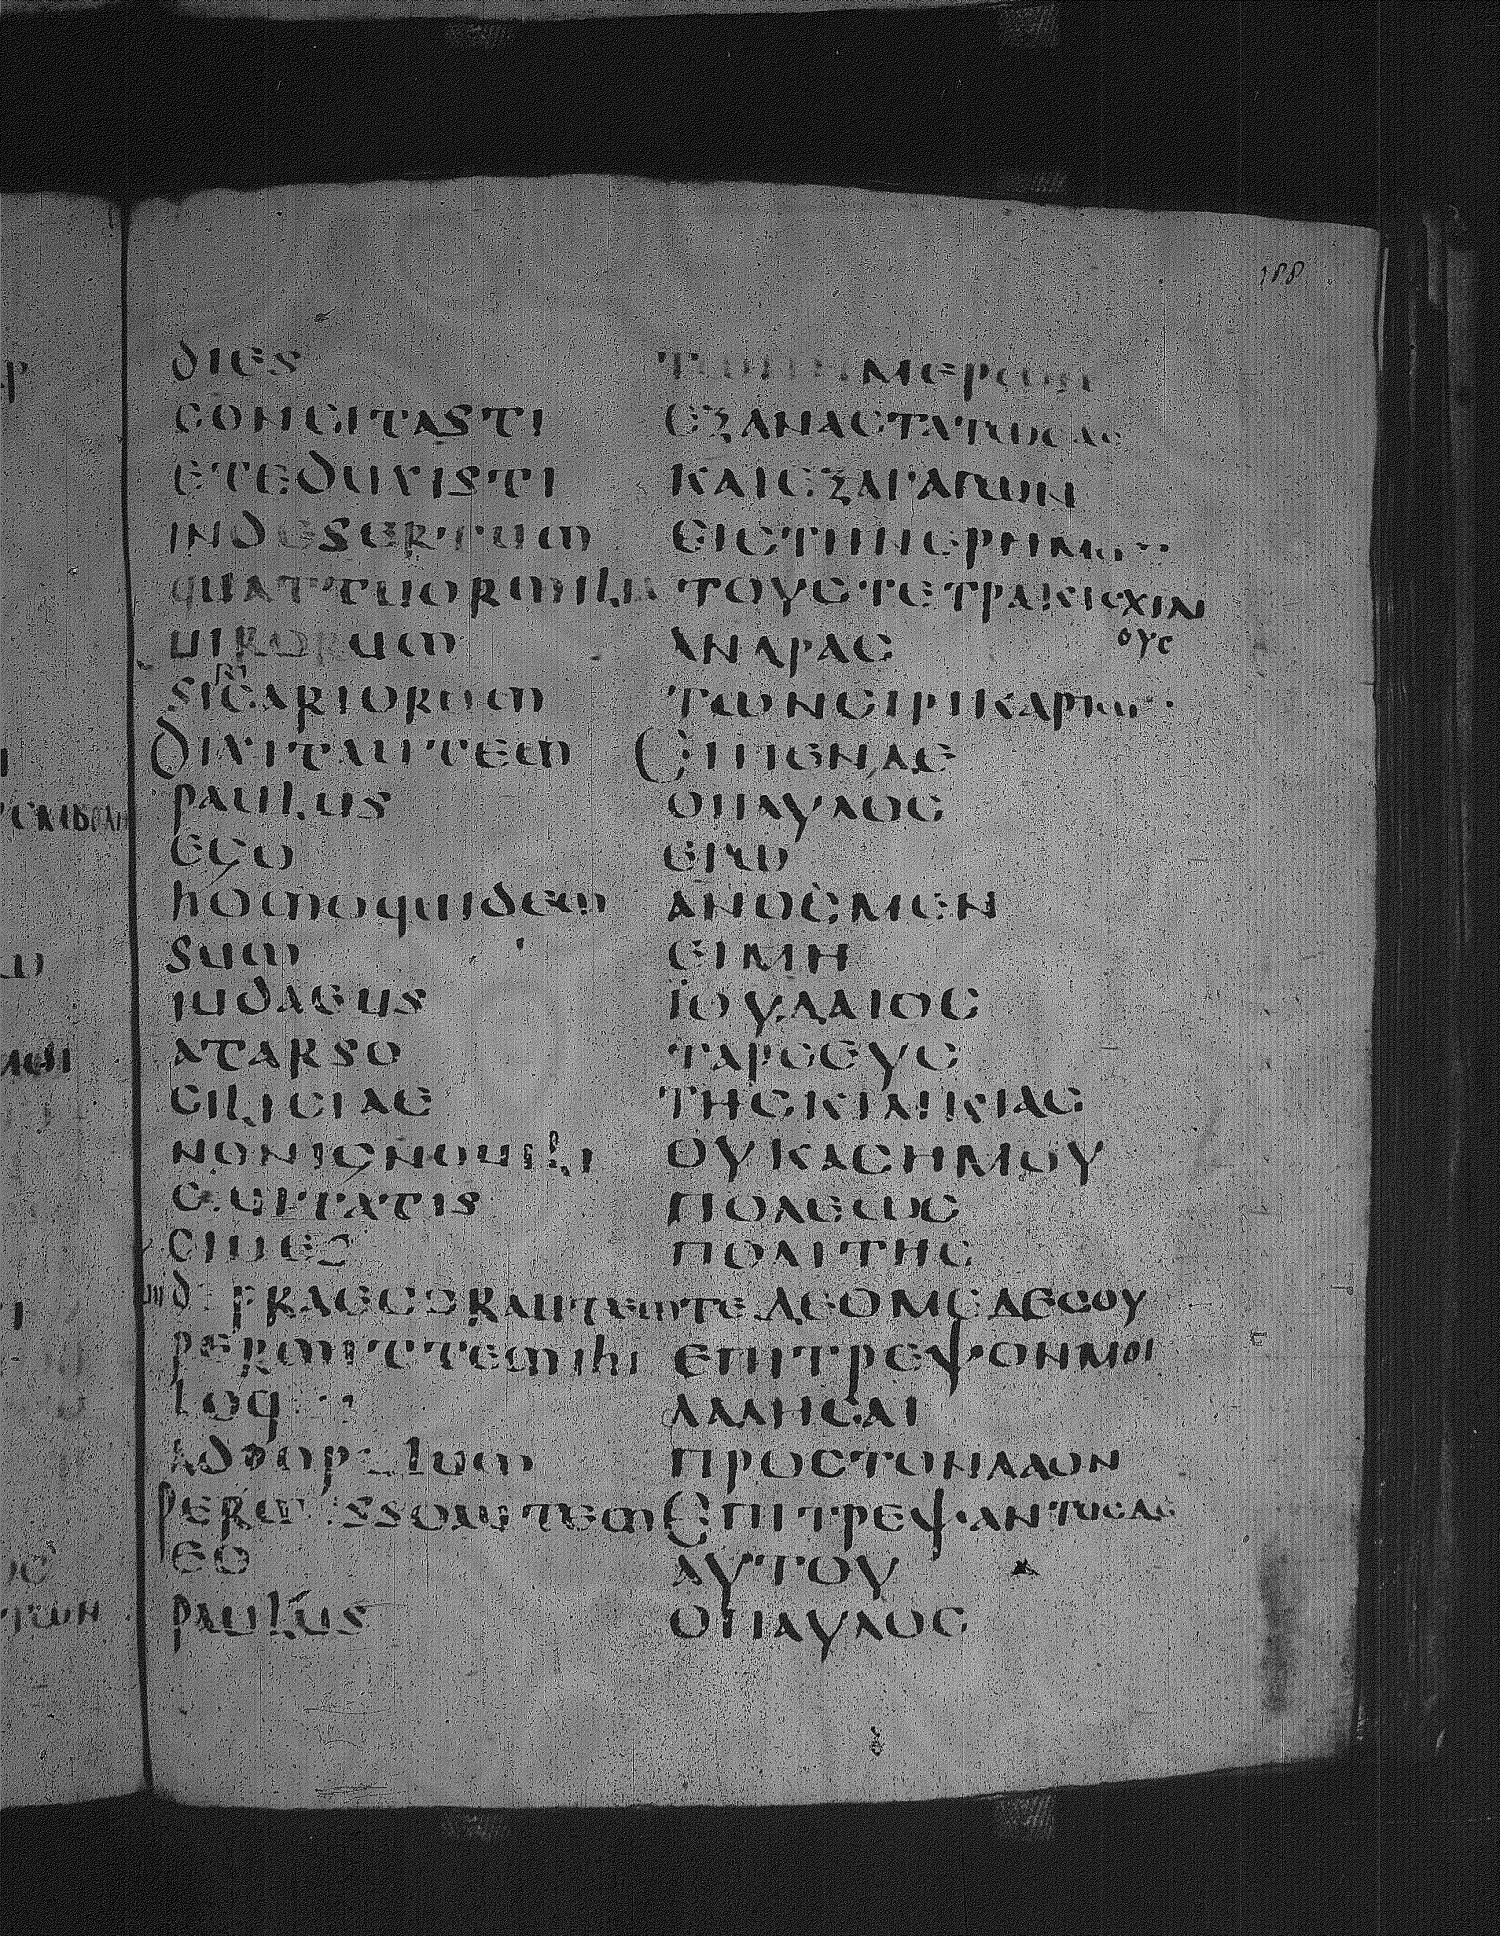 188
dies
concitasti
eteduxisti
indesertum
quattuormilia
uirorum
sicariorum
dixitautem
paulus
ego
homoquidem
sum
iudaeus
atarso
ciliciae
nonignouili
ciuitatis
ciues
permittemihi
adpopulum
eo
paulus
ΜΕΡΩΝ
ΕΞΑΝΑCΤΑΤΩCΑC
ΚΑΙΕΞΑΓΑΓΩΝ
ΕΙCΤΗΝΕΡΗΜΟ
ΤΟΥCΤΕΤΡΑΚΙCΧΙΛ
ΟΥC
ΑΝΔΡΑC
ΤΩΝCΙΡΙΚΑΡΙΩ
ΕΙΠΕΝΔΕ
ΟΠΑΥΛΟC
ΕΓΩ
ΑΝΟCΜΕΝ
ΕΙΜΗ
ΪΟΥΔΑΙΟC
ΤΑΡCΕΥC
ΤΗCΚΙΛΙΚΙΑC
ΟΥΚΑCΗΜΟΥ
ΠΟΛΕΩC
ΠΟΛΙΤΗC
ΔΕΟΜΕΔΕCΟΥ
ΕΠΙΤΡΕΨΟΝΜΟΙ
ΛΑΛΗCΑΙ
ΠΡΟCΤΟΝΛΑΟΝ
ΕΠΙΤΡΕΨΑΝΤΟCΔΕ
ΑΥΤΟΥ
ΟΠΑΥΛΟC